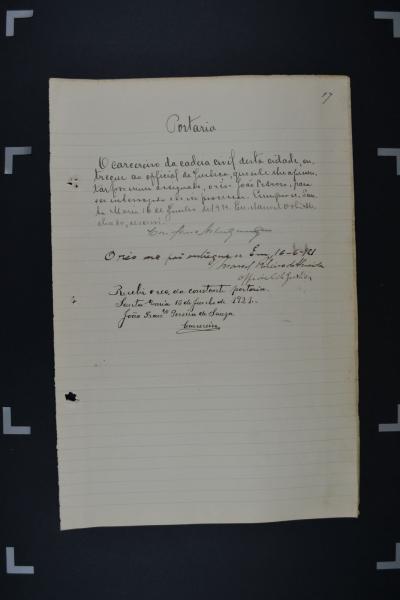 17
Portaria
O carcereiro da cadeia civil desta cidade, en-
tregue ao official de Justiça, que este lhe apresen-
tar, por mim assignado, o réo João Pedroso, para
ser interrogado em seu processo. Cumpra-se. San-
ta Maria 16 de Junho de 1921. Eu,
escrevi.
O réo me foi entregue. Em, 16-6-921
Official de Justiça
Recebi o réo da constante portaria.
Santa Maria 16 de Junho de 1921.
João Fran.co Pereira de Souza
Carcereiro